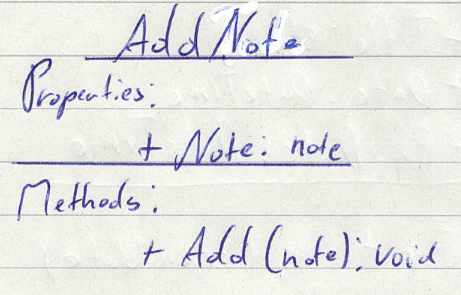 Add Note
Properties:
+ Note: note
Methods:
+ Add (note): void